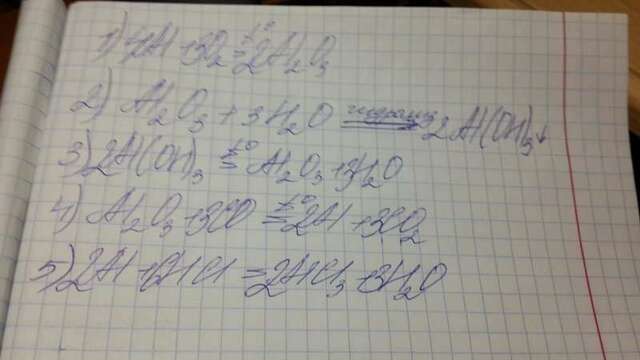 1) 4Al + 3O₂ =t° 2Al₂O₃
2) Al₂O₃ + 3H₂O = 2Al(OH)₃↓
3) 2Al(OH)₃ =t° Al₂O₃ + 3H₂O
4) Al₂O₃ + 3CO =t° 2Al + 3CO₂
5) 2Al + 6HCl = 2AlCl₃ + 3H₂O